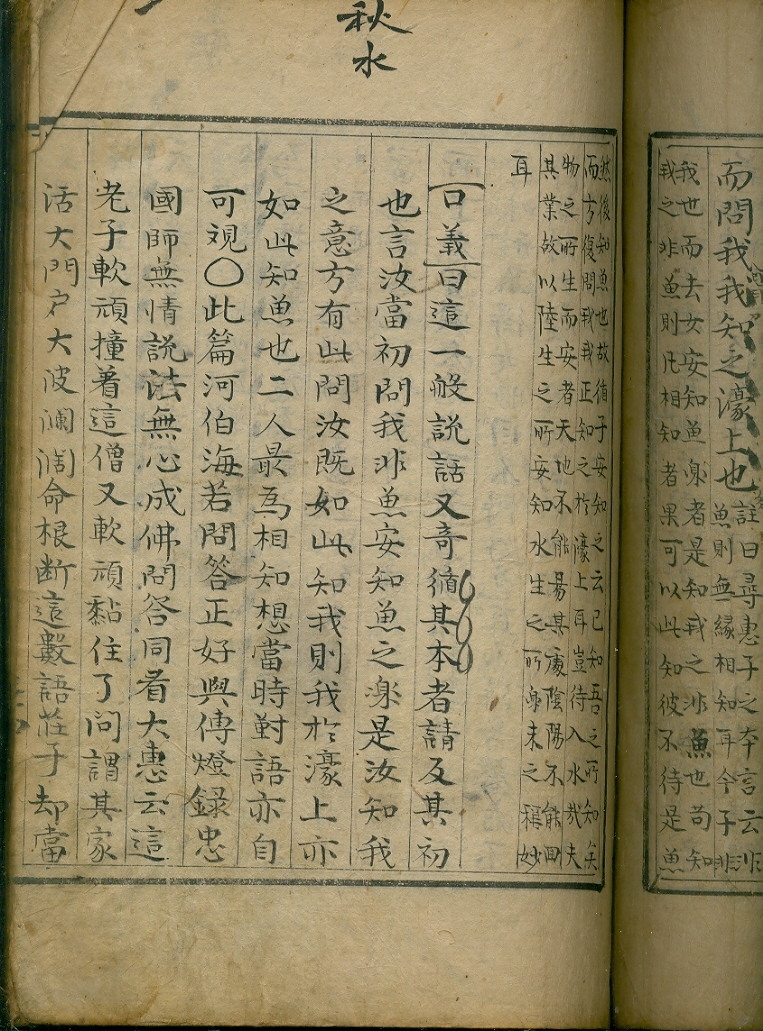 秋水
而問我我知之濠上也註曰尋惠子之本言云非
魚則無緣相知耳今子非
我也而去女安知魚樂者是知我之非魚也苟知
我之非魚則凡相知者果可以此知彼不待是魚
然後知魚也故循子安知之云已知吾之所知矣
而方復問我我正知之於濠上耳豈待入水哉夫
物之所生而安者天地不能易其處陰陽不能回
其業故以陸生之所安知水生之所樂未之稱妙
耳
口義曰這一般說話又奇循其本者請反其初
也言汝當初問我非魚安知魚之樂是汝知我
之意方有此問汝既如此知我則我於濠上亦
如此知魚也二人最為相知想當時對語亦自
可觀〇此篇河伯海若問答正好與傳燈錄忠
國師無情說法無心成佛問答同看大惠云這
老子軟頑撞着這僧又軟頑黏住了問謂其家
活大門户大波瀾濶命根斷這數語莊子却當